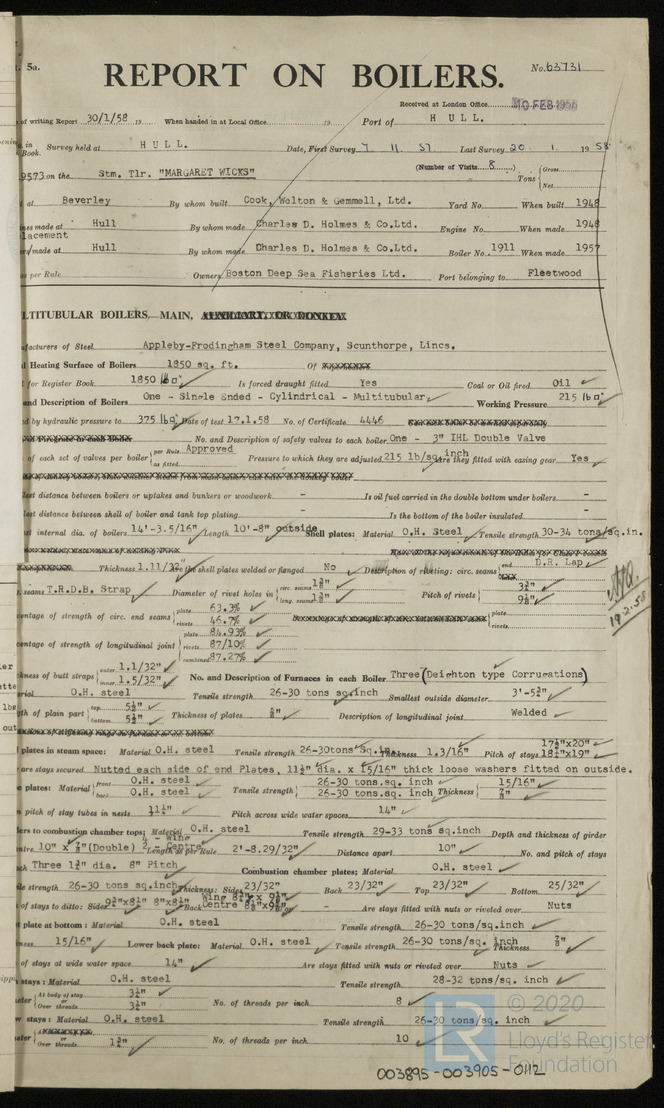 5a.
REPORT ON BOILERS.
No. 63731
Received at London Office 10 FEB 1958
of writing Report 30/1/58 19 When handed in at Local Office 19 Port of HULL.
in Book. Survey held at HULL. Date, First Survey 7. 11. 57. Last Survey 20. 1. 1958
(Number of Visits 8)
9573 on the Stm. Tlr. "MARGARET WICKS" Tons Gross Net
at Beverley By whom built Cook, Welton & Gemmell, Ltd. Yard No. When built 1948
nes made at Hull By whom made Charles D. Holmes & Co.Ltd. Engine No. When made 1948
lacement
made at Hull By whom made Charles D. Holmes & Co.Ltd. Boiler No. 1911 When made 1957
as per Rule Owners Boston Deep Sea Fisheries Ltd. Port belonging to Fleetwood
LTITUBULAR BOILERS, MAIN, AUXILIARY, OR DONKEY
ufacturers of Steel Appleby-Frodingham Steel Company, Scunthorpe, Lincs.
l Heating Surface of Boilers 1850 sq. ft. Of
for Register Book. 1850 Is forced draught fitted Yes Coal or Oil fired Oil
and Description of Boilers One - Single Ended - Cylindrical - Multitubular Working Pressure 215 lb □"
d by hydraulic pressure to 375 lb □" Date of test 17.1.58 No. of Certificate 4446
No. and Description of safety valves to each boiler One - 3" IHL Double Valve
of each set of valves per boiler per Rule Approved as fitted Pressure to which they are adjusted 215 lb/sq.inch Are they fitted with easing gear Yes
lest distance between boilers or uptakes and bunkers or woodwork - Is oil fuel carried in the double bottom under boilers -
lest distance between shell of boiler and tank top plating - Is the bottom of the boiler insulated -
st internal dia. of boilers 14'-3.5/16" Length 10'-8" outside Shell plates: Material O.H. Steel Tensile strength 30-34 tons/sq.in.
Thickness 1.11/32" Are the shell plates welded or flanged No Description of riveting: circ. seams end D.R. Lap
seams T.R.D.B. Strap Diameter of rivet holes in circ. seams long. seams Pitch of rivets
entage of strength of circ. end seams plate 63.3% rivets 46.7%
plate 84.93%
entage of strength of longitudinal joint rivets 87/10%
combined 87.27%
kness of butt straps outer 1.1/32" inner 1.5/32" No. and Description of Furnaces in each Boiler Three (Deighton type Corrugations)
rial O.H. steel Tensile strength 26-30 tons sq.inch Smallest outside diameter
th of plain part top bottom Thickness of plates Description of longitudinal joint Welded
plates in steam space: Material O.H. steel Tensile strength 26-30tons sq.in. Thickness 1.3/16" Pitch of stays
are stays secured Nutted each side of end Plates, 11½" dia. x 15/16" thick loose washers fitted on outside.
e plates: Material front O.H. steel back O.H. steel Tensile strength 26-30 tons.sq. inch 26-30 tons.sq. inch Thickness 15/16" ⅞"
pitch of stay tubes in nests 11¼" Pitch across wide water spaces 14"
ers to combustion chamber tops; Material O.H. steel Tensile strength 29-33 tons sq.inch Depth and thickness of girder
4 - Wing
ntre 10" x ⅞"(Double) 2 - Centre Length as per Rule 2'-8.29/32" Distance apart 10" No. and pitch of stays
ch Three 1¾" dia. 8" Pitch Combustion chamber plates; Material O.H. steel
le strength 26-30 tons sq.inch Thickness: Sides 23/32" Back 23/32" Top 23/32" Bottom 25/32"
of stays to ditto: Sides Back Wing Centre - Are stays fitted with nuts or riveted over Nuts
plate at bottom: Material O.H. steel Tensile strength 26-30 tons/sq.inch
ness 15/16" Lower back plate: Material O.H. steel Tensile strength 26-30 tons/sq. inch Thickness ⅞"
of stays at wide water space 14" Are stays fitted with nuts or riveted over Nuts
stays: Material O.H. steel Tensile strength 28-32 tons/sq. inch
eter At body of stay 3¼" or Over threads 3¼" No. of threads per inch 8
w stays: Material O.H. steel Tensile strength 26-30 tons/sq. inch
eter or Over threads 1¾" No. of threads per inch 10
19.2.58
LR © 2020
Lloyd's Register
Foundation
003895-003905-0112